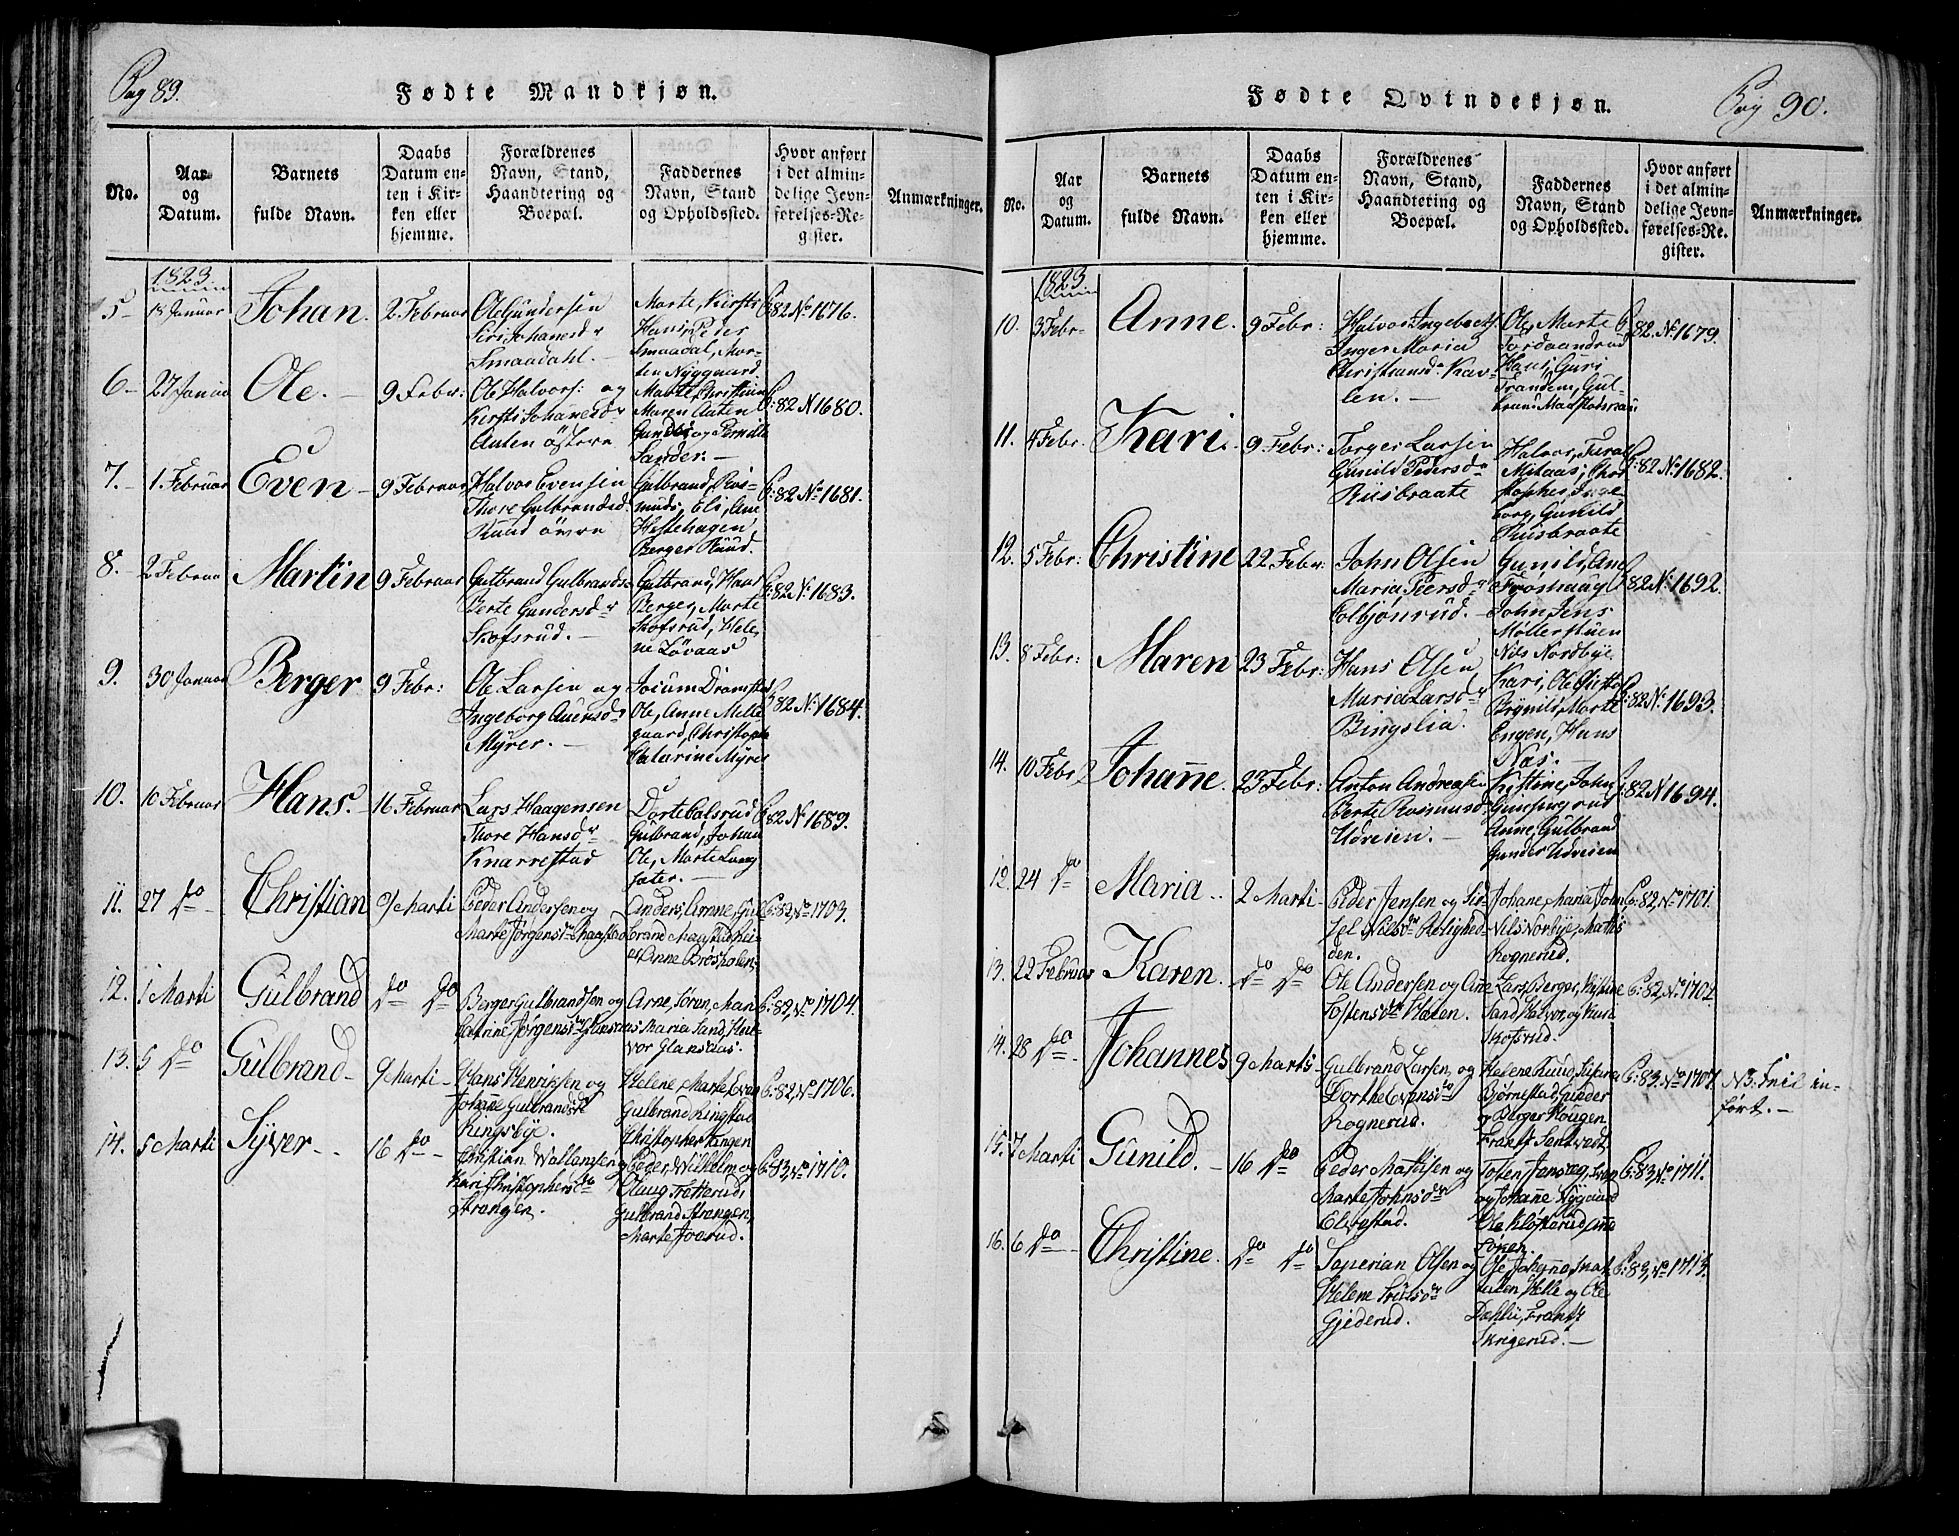 Pag 89.
Fødte Mandkjøn.
No.
Aar og Datum.
Barnets fulde Navn.
Daabs Datum enten i Kirken eller hjemme.
Forældrenes Navn, Stand, Haandtering og Boepæl.
Faddernes Navn, Stand og Opholdssted.
Hvor anført i det almindelige Jevnførelses-Register.
Anmærkninger.
1823
5 18 Januar Johan. 2 Februar
Ole Gundersen
Siri Johanesdr
Smaadahl.
Marte, Kirsti
Hans, Peder
Smaadal, Morten Nyggaard
82 No 1676.
6 27 Januar Ole. 9 Febr:
Ole Halvors: og
Kirsti Johanesdr
Auten östere
Marte, Christian
Maren Auten
Gunder og Pernille
Sander.
82 N 1680.
7. 1. Februar Even 9 Februar
Halvor Evensen
Thore Gulbrandsd.
Ruud övre
Gulbrand, Rasmus, Els, Ane
Hestehagen,
Berger Ruud.
82 No 1681.
8. 2 Februar Martin 9 Februar
Gulbrand Gulbrands
Berte Gundersdr
Skofsrud.
Gulbrand, Hans
Berger, Marte
Skofsrud, Helene Lövaas
82 No 1683.
9. 30 Januar Berger 9 Febr:
Ole Larsen og
Ingeborg
Myrer.
Ole, Anne Mellegaard, Christopher
Catarine Myrer
82 No 1684.
10. 10 Februar Hans. 16 Februar
Lars Haagensen
Thore Hansdr
Knarrestad
Dorte Balsrud
Gulbrand, Johan
Ole, Marte Langsæter.
82 No 1689.
11. 27 do Christian 9 Marti
Peder Andersen og
Marte Jörgensdr
Anders, Anne, Gulbrand
82, No 1703.
12. 1 Marti Gulbrand do do
Berger Gulbrandsen og
Catrine Jörgensdr Glansaas
Arne, Sören, Maria Sand, Halvor Glansaas.
82, No 1704.
13. 5 do Gulbrand 9 Marti
Hans Henriksen og
Johanne Gulbrandsdr
Ringsbÿe.
Helene, Marte, Even
Gulbrand Ringstad
Christopher Tangen
82, No 1706.
14. 5 Marti Syver 16 do
Christian Wallensen og
Kari Christophersdr
Strangen.
Peder, Wilhelm og
Olaug Tætterud,
Gulbrand Strangen,
Marte Joerud.
83, No 1710.
Fødte Qvindekjøn.
Pag 90.
No.
Aar og Datum.
Barnets fulde Navn.
Daabs Datum enten i Kirken eller hjemme.
Forældrenes Navn, Stand, Haandtering og Boepæl.
Faddernes Navn, Stand og Opholdssted.
Hvor anført i det almindelige Jevnførelses-Register.
Anmærkninger.
1823
10. 3 Febr Anne. 9 Febr:
Halvor Ingebretsen
Inger Maria
Christiansdr
Ole, Marte
Hans, Guri
Trandem,
82 No 1679.
11. 4 Febr. Kari. 9 Febr:
Torger Larsen
Gunild Pedersdr
Riisbraate
Halvor,
Milaas, Christopher, Ingeborg, Gunild
Riisbraate
82 No 1682.
12. 5 Febr: Christine 22 Febr:
John Olsen
Maria Peersdr
Colbjönrud.
Gunild, Ane
Froshaug
John, Jens
Möllerstuen
Nils Nordbye.
82 No 1692.
13. 8 Febr: Maren 23 Febr:
Hans Olsen
Maria Larsdr
Bingslia.
Kari, Ole
Brynild, Marte
Engen, Hans
Næs.
82 No 1693.
14. 10 Febr Johanne. 23 Febr:
Anton Andreasen
Berte Rasmusdr
Udveien.
Kistine, John
Anne, Gulbrand
Gunder Udveien
82 N 1694.
12. 24 do Maria 2 Marti
Peder Jensen og Sidsel Nilsdr Roligheden.
Johane, Maria, John
Nils Norbye, Mathis
Rognerud.
82, No 1701.
13. 22 Februar Karen. do do
Ole Andersen og Ane
Tostensdr
Lars, Berger, Kistine
Sand, Halvor, og
Skofsrud.
82, No 1702.
14. 28 do Johannes 9 Marti
Gulbrand Larsen, og
Dorthe Evensdr
Rognerud.
Helene Ruud,
Björnestad, Gunder
og Berger Hougen,
83, No 1707.
NB. Feil infört.
15. 7 Marti Gunild. 16 do
Peder Mathisen og
Marte Johnsdr
Elvestad.
og Johanne Nygaard
83, No 1711.
16. 6 do Christine. do do
Olsen og
Helene
Gjederud.
Helle og Ole
Dahlie, Frantz
Skrigerud.
83, No 1713.